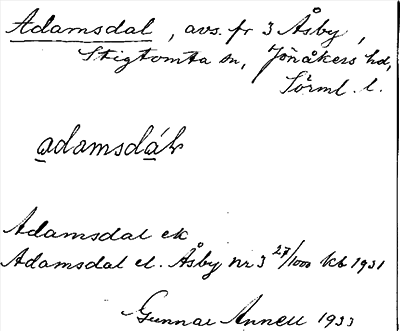 Adamsdal, avs. fr 3 Åsby,
Stigtomta sn, Jönåkers hd,
Sörml. l.
adamsdáḷ
Adamsdal ek
Adamsdal el. Åsby nr 3 27/1000 kb 1931
Gunnar Annell 1933